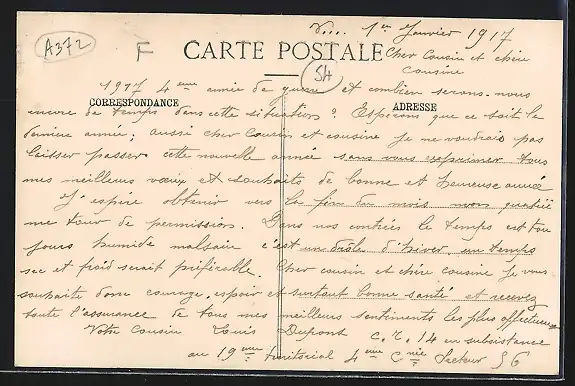 A372
F
V... 1er Janvier 1917
CARTE POSTALE
Cher Cousin et chère
Cousine
54
1917 4eme année de guerre et combien serons-nous
CORRESPONDANCE
ADRESSE
encore de temps dans cette situation ? Espérons que ce soit la
dernière année ; aussi cher Cousin et cousine je ne voudrais pas
laisser passer cette nouvelle année sans vous exprimer tous
mes meilleurs vœux et souhaits de bonne et heureuse année
J'espère obtenir vers la fin du mois mon quatrième
tour de permission. Dans nos contrées le temps est tou
jours humide malsaire c'est un drôle d'hiver un temps
sec et froid serait préférable. Cher cousin et chère cousine je vous
souhaite donc courage, espoir et surtout bonne santé et recevez
toute l'assurance de tous mes meilleurs sentiments les plus affectueux
Votre Cousin Louis Dupont C.R. 14 en subsistance
au 19eme territorial 4eme Cnie Secteur 56